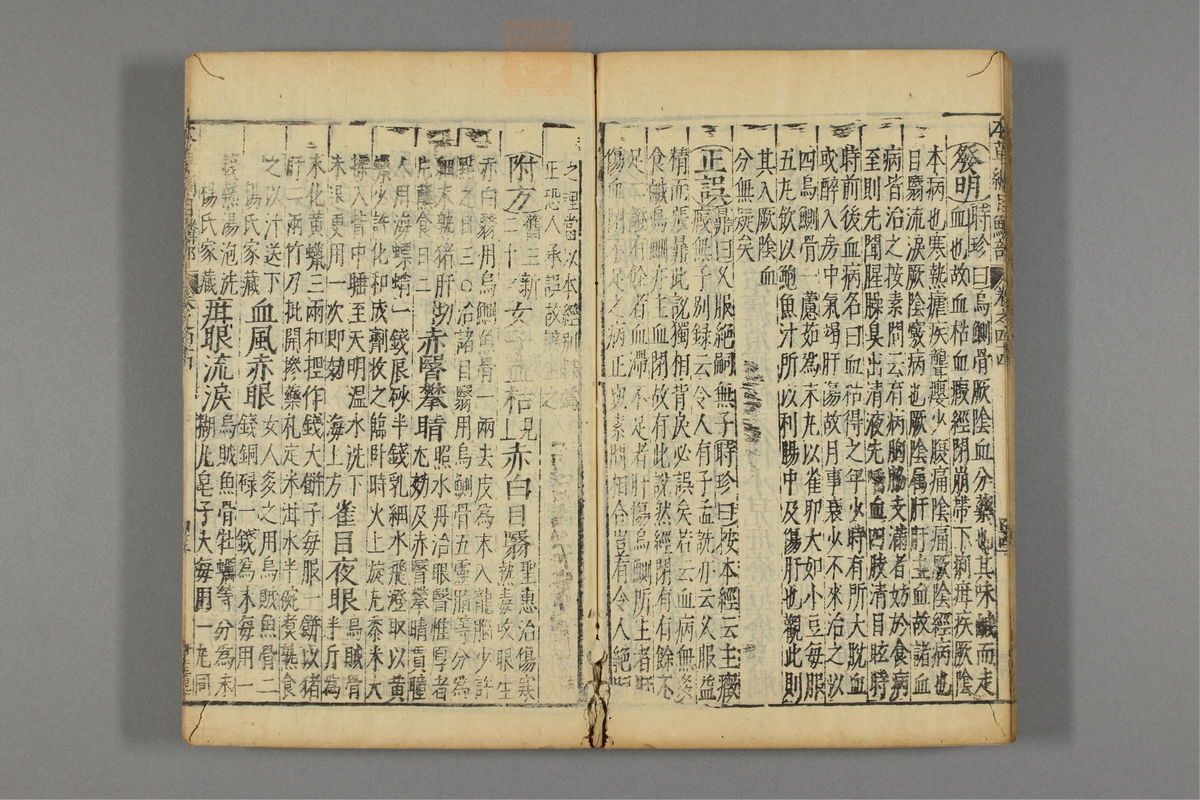 本草綱目鱗部 卷之四四
發明時珍曰烏鰂骨厥陰血分藥也其味鹹而走
血也故血枯血瘕經閉崩帶下痢疳疾厥陰
本病也寒熱瘧疾聾癭少腹痛陰痛厥陰經病也
目翳流淚厥陰竅病也厥陰屬肝肝主血故諸血
病者治之按素問云有病胸脇支滿者妨於食病
至則先聞腥臊臭出清液先唾血四肢清目眩時
時前後血病名曰血枯得之年少時有所大脫血
或醉入房中氣竭肝傷故月事衰少不來治之以
四烏鰂骨一藘茹為末丸以雀卵大如小豆每服
五丸飲以鮑魚汁所以利腸中及傷肝也觀此則
其入厥陰血
分無疑矣
正誤鼎曰久服絕嗣無子時珍曰按本經云主癥
瘕無子別錄云令人有子孟詵亦云久服益
精而張鼎此說獨相背戾必誤矣若云血病無多
食鹹烏鰂亦主血閉故有此說然經閉有有餘不
足二證有餘者血滯不足者肝傷烏鰂所主者肝
傷血閉不足之病正與素問相合豈有令人絕
之理當以本經別錄
正恐人承誤故辯
附方舊三新二十女子血枯見上赤白目翳聖惠治傷寒熱毒攻眼生
赤白翳用烏鰂魚骨一兩去皮為末入龍腦少許
點之日三○治諸目翳用烏鰂骨五靈脂等分為
細末熟猪肝切片蘸食日二赤瞖攀睛照水丹治眼瞖惟厚者尤効及赤瞖攀睛貫瞳
人用海螵蛸一錢辰砂半錢乳細水飛澄取以黃
蠟少許化和成劑收之臨臥時火上旋丸黍米大
揉入眥中睡至天明溫水洗下
未退更用一次即効海上方雀目夜眼烏賊骨半斤為
末化黃蠟三兩和捏作錢大餅子每服一餅以猪
肝二兩竹刀批開摻藥扎定米泔水半碗煮熟食
之以汁送下楊氏家藏血風赤眼女人多之用烏賊魚骨二錢銅碌一錢為末每用一
錢熱湯泡洗楊氏家藏疳眼流淚烏賊魚骨牡蠣等分為末糊丸皂子大每用一丸同